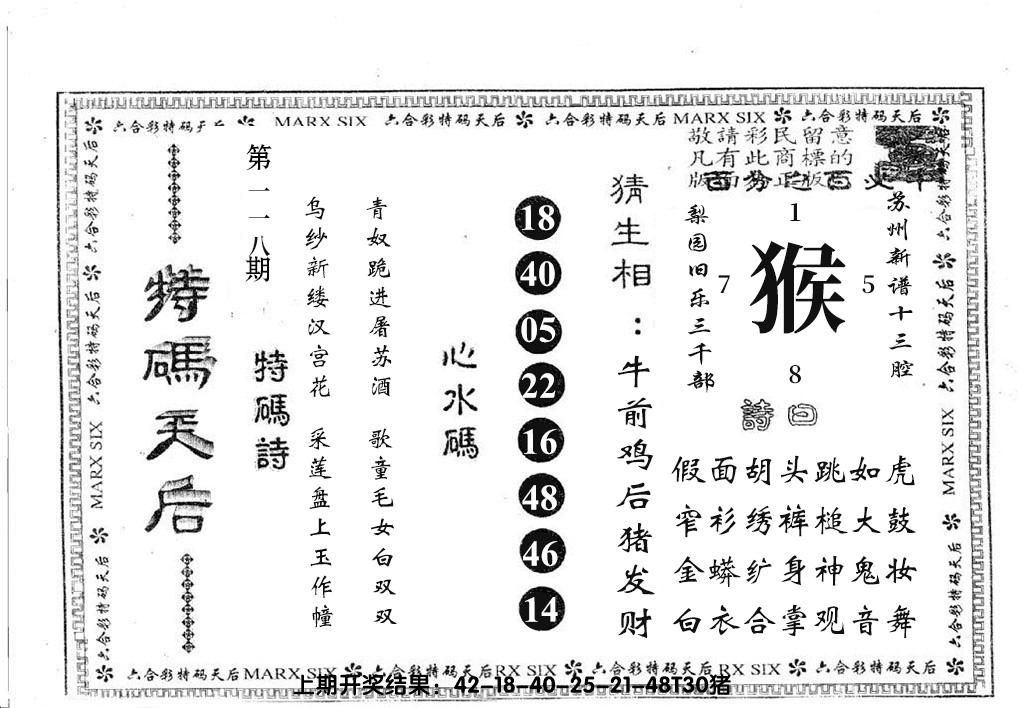 六合彩特码天后 MARX SIX 六合彩特码天后 六合彩特码天后 MARX SIX 六合彩特码天后
敬請彩民留意
凡有此商標的
版面为正版
特碼天后
第一一八期
特碼詩
乌纱新缕汉宫花 采莲盘上玉作幢
青奴跪进屠苏酒 歌童毛女白双双
心水碼
18
40
05
22
16
48
46
14
猜生相：牛前鸡后猪发财
梨园旧乐三千部
1
7
猴
5
8
苏州新谱十三腔
詩曰
假面胡头跳如虎
窄衫绣裤槌大鼓
金蟒纩身神鬼妆
白衣合掌观音舞
六合彩特码天后
MARX SIX
六合彩特码天后
六合彩特码天后
MARX SIX
六合彩特码天后
六合彩特码天后 MARX SIX 六合彩特码天后 RX SIX 六合彩特码天后 RX SIX 六合彩特码天后
上期开奖结果：42-18-40-25-21-48T30猪